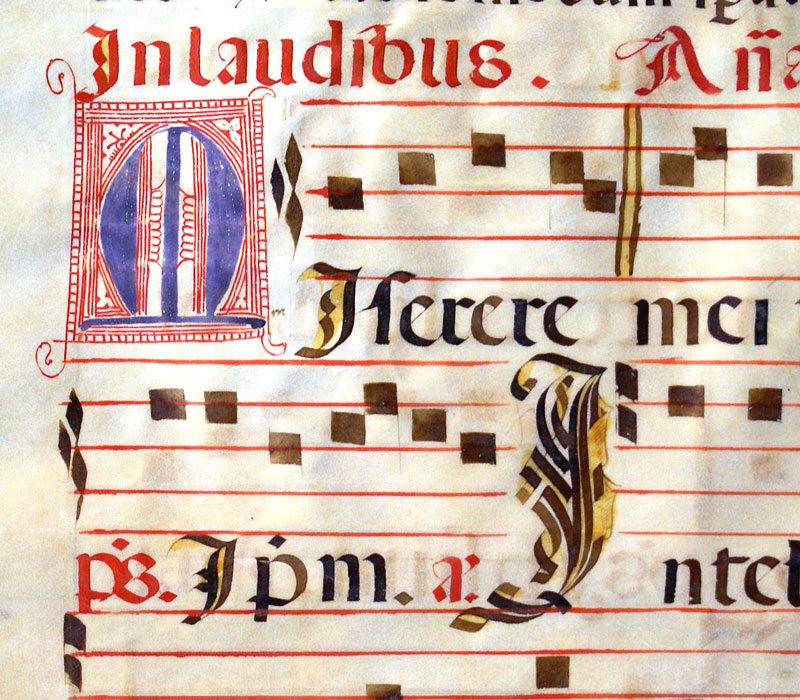 In laudibus. Añã
MIserere mei
p̄s. Ip̄m. a. Inte